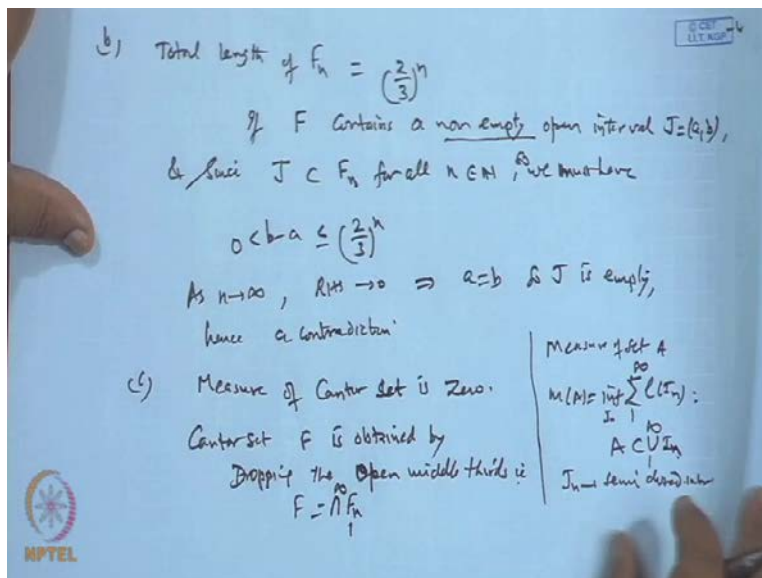 © CET
I.I.T. KGP
b) Total length of Fn = (2/3)^n
If F contains a non empty open interval J=(a,b),
& Since J ⊂ Fn for all n ∈ N, we must have
0 < b-a ≤ (2/3)^n
As n→∞, RHS →0 ⇒ a=b so J is empty,
hence a contradiction
(c) Measure of Cantor Set is Zero.
Cantor Set F is obtained by
Dropping the open middle thirds ie
F = ∩_1^∞ Fn
Measure of set A
m(A) = inf_{In} ∑_1^∞ l(In) :
A ⊂ ∪_1^∞ In
In — semi closed
NPTEL